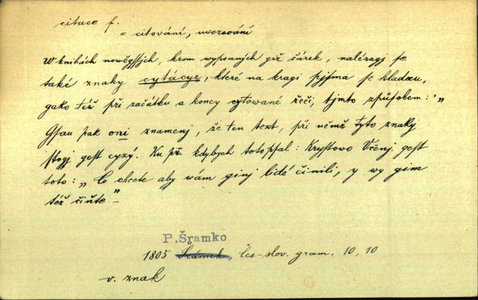 citace f.
= citování, uvozování
W knihách nowěgssjch, krom wypsaných giž čárek, nalézagj se
také znaky cytácye, které na kragi pjsma se kladau,
gako též při začátku a koncy cytowané řeči, tjmto způsobem: „ "
Gsau pak oni znamenj, že ten text, při němž tyto znaky
stogj gest cyzý. Ku př. kdybych toto psal: Krystowo Včenj gest
toto: „Co chcete aby wám ginj lidé činili, y wy gim
též čiňte"
P. Šramko
1805 Sedmek, čes-slov. gram. 10, 10
v. znak